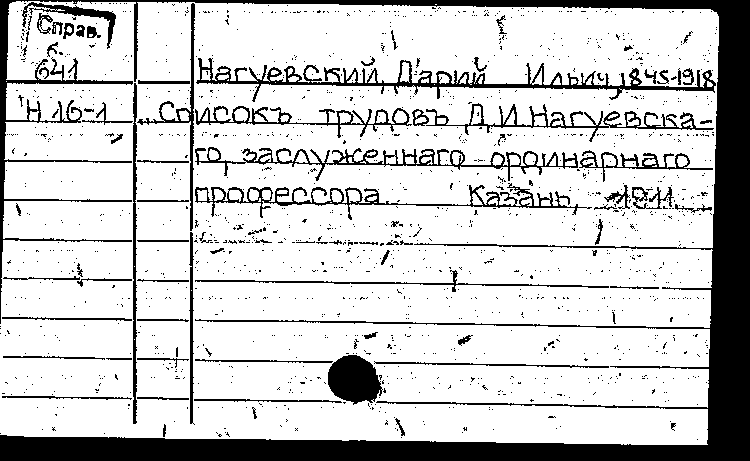 Справ.
б.
641
Нагуевский, Дарий Ильич, 1845-1918
Н 16-1
„Списокъ трудовъ Д. И. Нагуевска-
го, заслуженнаго ординарнаго
профессора. Казань, 1911.